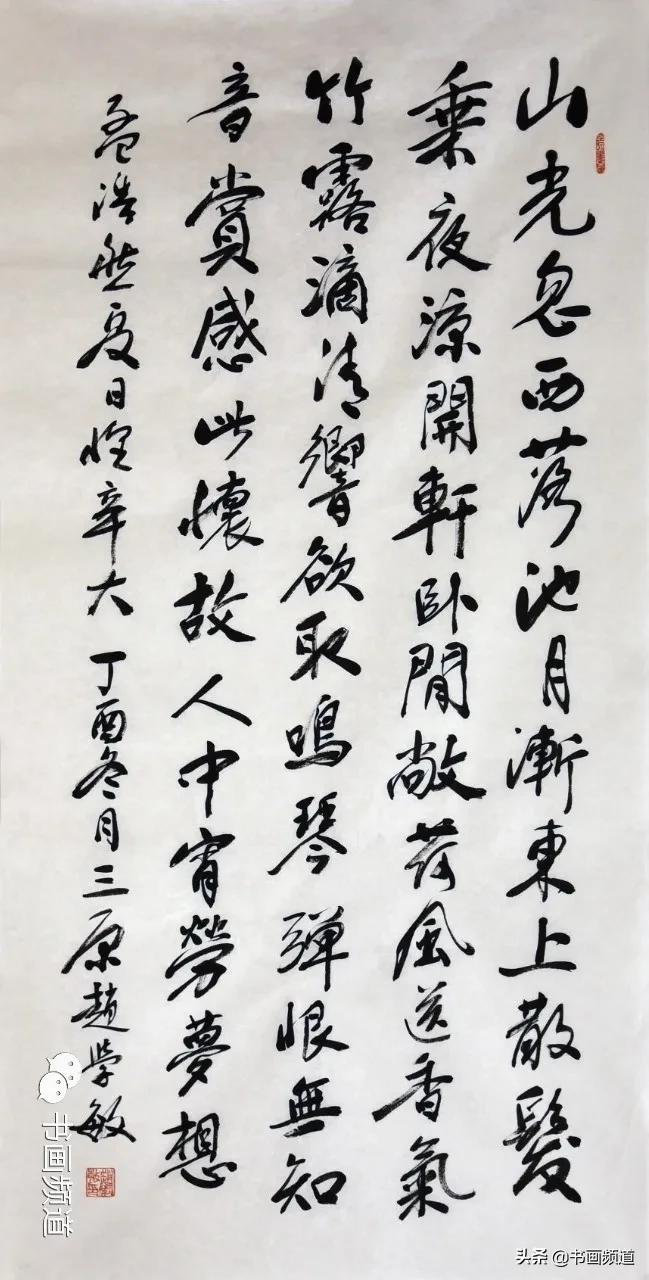 山光忽西落池月漸東上散髮
乘夜涼開軒臥閒敞荷風送香氣
竹露滴清響欲取鳴琴彈恨無知
音賞感此懷故人中宵勞夢想
孟浩然夏日懷辛大 丁酉冬月三原趙學敏
书画频道
头条 @书画频道